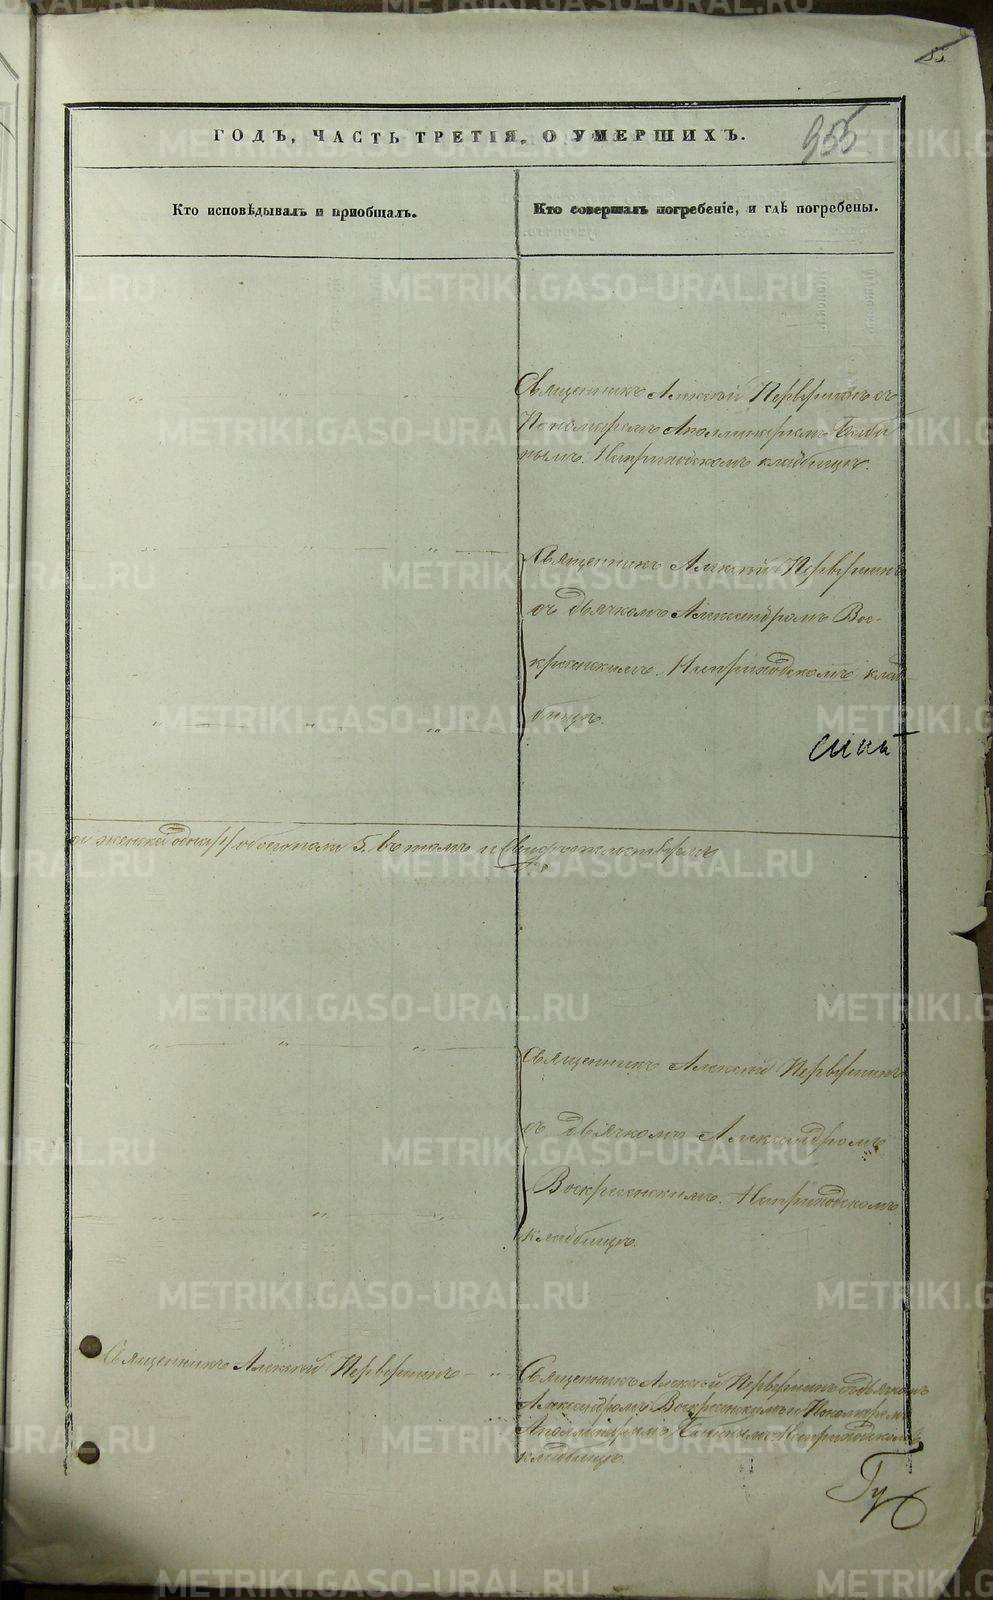 85
ГОДЪ, ЧАСТЬ ТРЕТІЯ, О УМЕРШИХЪ.
955
Кто исповѣдывалъ и пріобщалъ.
Кто совершалъ погребеніе, и гдѣ погребены.
Священникъ Алексій Первушинъ съ
Пономаремъ Аполлинаріемъ Баби
нымъ. На приходскомъ кладбищѣ.
Священникъ Алексій Первушинъ
съ дьячкомъ Александромъ Вос-
кресенскимъ. На приходскомъ клад-
бищѣ.
женска одна обоего пола 5. въ томъ и свидѣтельствуемъ
Священникъ Алексій Первушинъ
съ дьячкомъ Александромъ
Воскресенскимъ. На приходскомъ
кладбищѣ.
Священникъ Алексій Первушинъ
Священникъ Алексій Первушинъ съ дьячкомъ
Александромъ Воскресенскимъ и Пономаремъ
Аполлинаріемъ Бабинымъ на приходскомъ
кладбищѣ.
METRIKI.GASO-URAL.RU